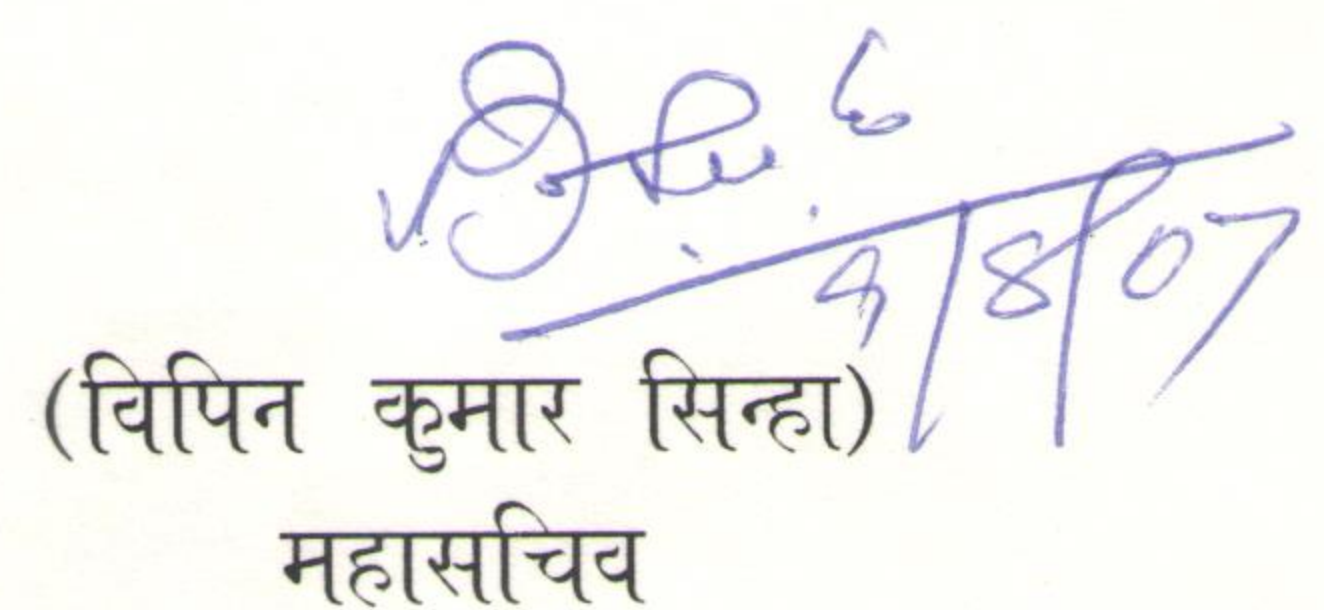 9/8/07
(विपिन कुमार सिन्हा)
महासचिव